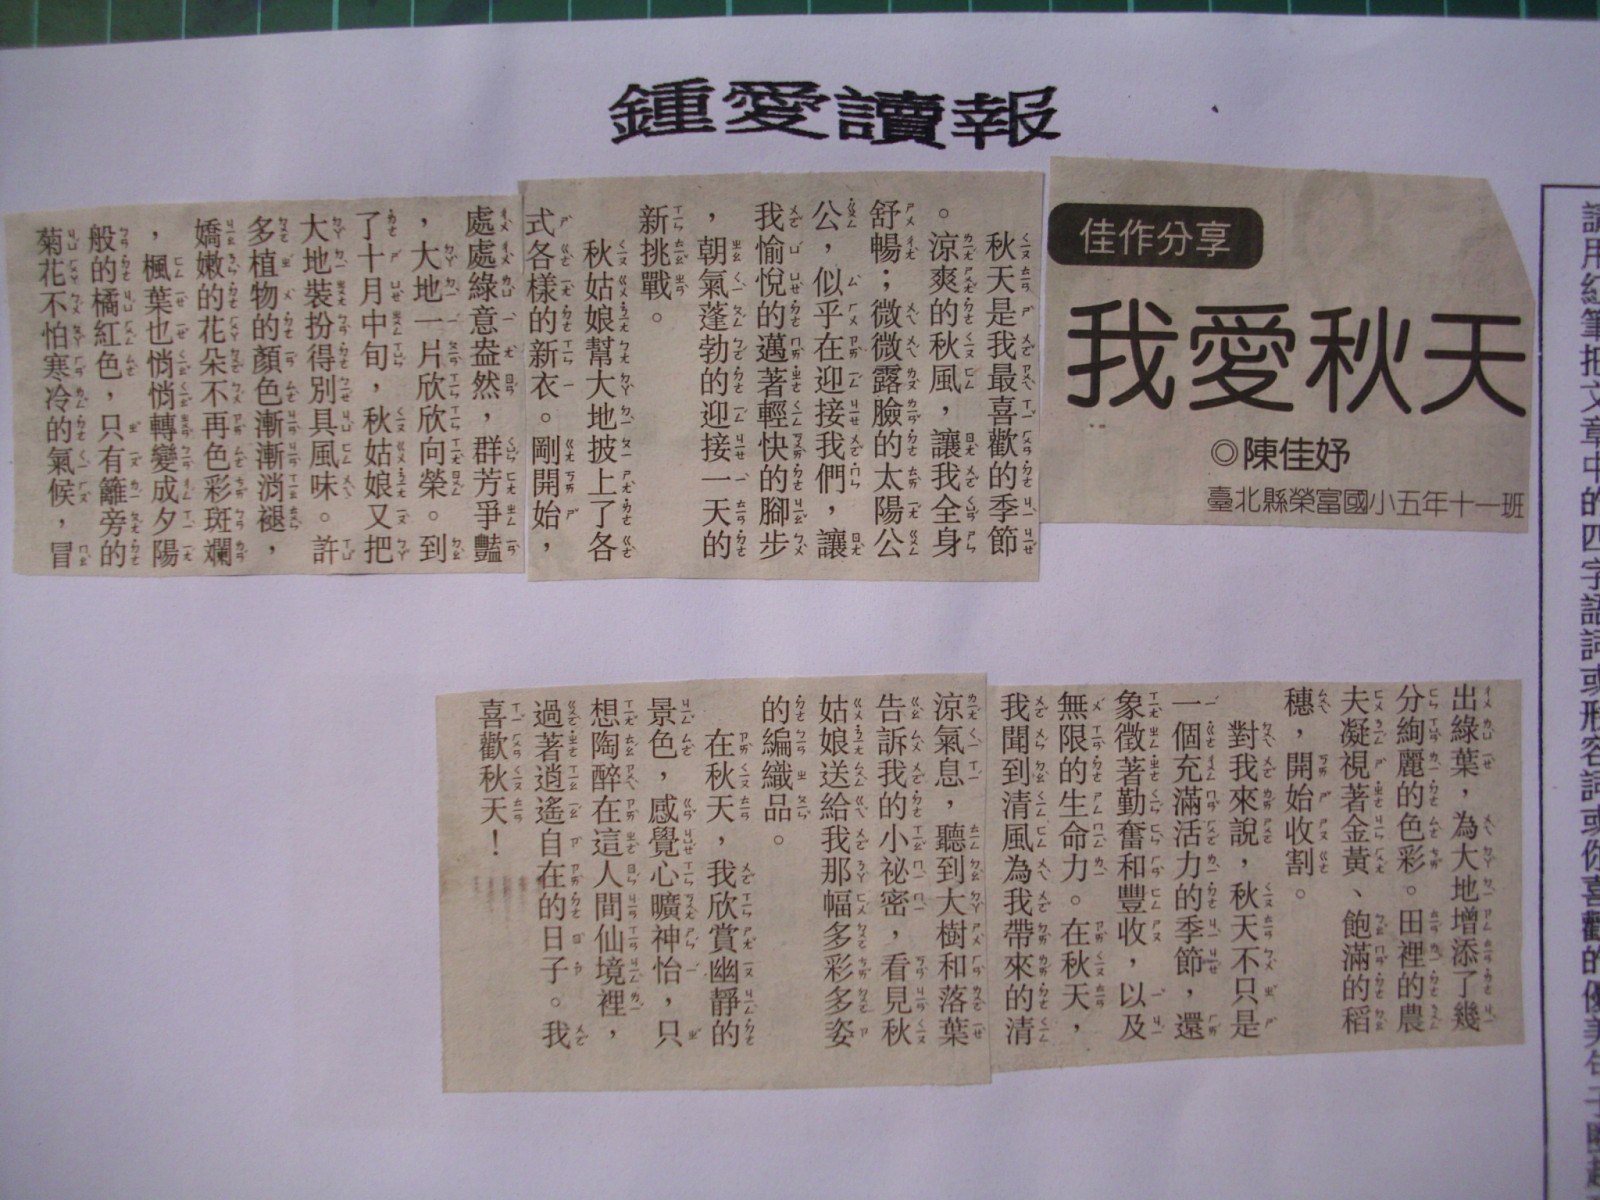 鍾愛讀報
佳作分享
我愛秋天
◎陳佳妤
臺北縣榮富國小五年十一班
秋天是我最喜歡的季節
。涼爽的秋風，讓我全身
舒暢；微微露臉的太陽公
公，似乎在迎接我們，讓
我愉悅的邁著輕快的腳步
，朝氣蓬勃的迎接一天的
新挑戰。
秋姑娘幫大地披上了各
式各樣的新衣。剛開始，
處處綠意盎然，群芳爭豔
，大地一片欣欣向榮。到
了十月中旬，秋姑娘又把
大地裝扮得別具風味。許
多植物的顏色漸漸消褪，
嬌嫩的花朵不再色彩斑斕
，楓葉也悄悄轉變成夕陽
般的橘紅色，只有籬旁的
菊花不怕寒冷的氣候，冒
出綠葉，為大地增添了幾
分絢麗的色彩。田裡的農
夫凝視著金黃、飽滿的稻
穗，開始收割。
對我來說，秋天不只是
一個充滿活力的季節，還
象徵著勤奮和豐收，以及
無限的生命力。在秋天，
我聞到清風為我帶來的清
涼氣息，聽到大樹和落葉
告訴我的小祕密，看見秋
姑娘送給我那幅多彩多姿
的編織品。
在秋天，我欣賞幽靜的
景色，感覺心曠神怡，只
想陶醉在這人間仙境裡，
過著逍遙自在的日子。我
喜歡秋天！
請用紅筆把文章中的四字語詞或形容詞或你喜歡的優美句子圈起